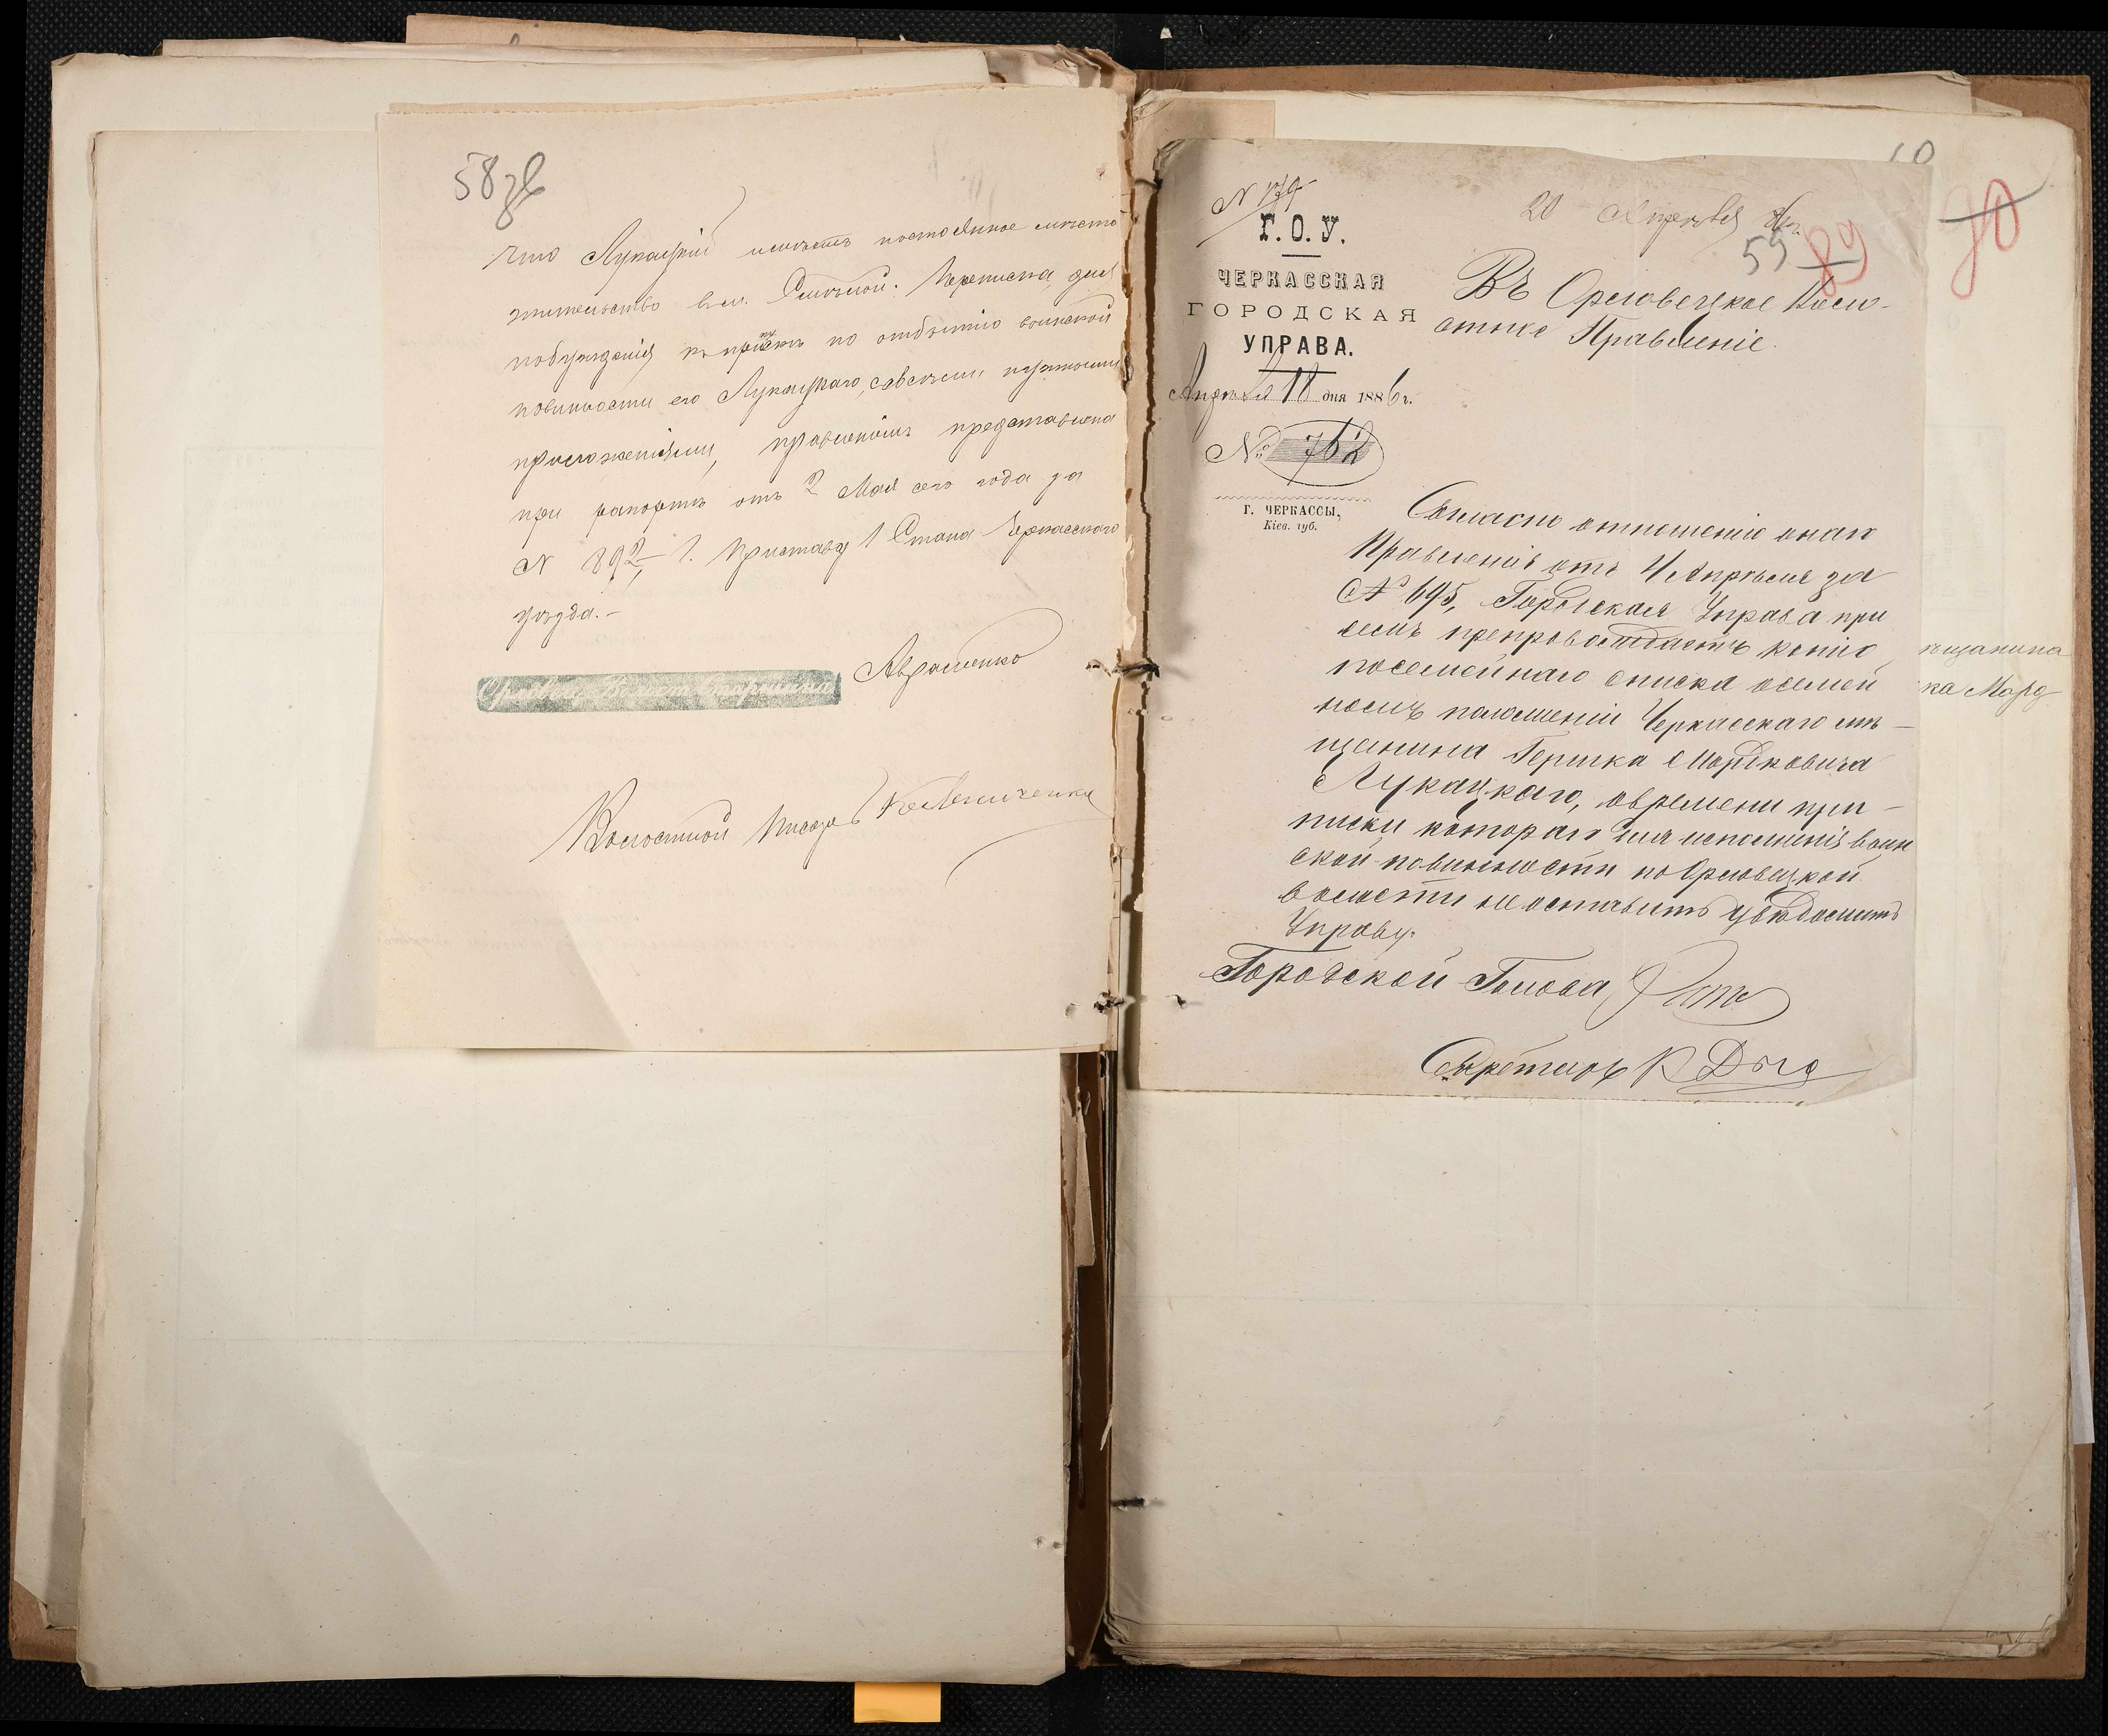 58 зв
что Лукацкій имѣетъ постоянное мѣсто
жительство въ м. Смѣлой. Переписка, для
побужденія къ припискѣ по отбытію воинской
повинности его Лукацкаго, совсѣми
приложеніями, правленіемъ представлена
при рапортѣ отъ 2 Мая сего года за
N 892, Г. Приставу 1 Стана Черкасскаго
уѣзда.-
Авраменко
Волостной Писарь
N 179
Г. О. У.
ЧЕРКАССКАЯ
ГОРОДСКАЯ
УПРАВА.
Апрѣля 18 дня 1886 г.
№ 762
Г. ЧЕРКАССЫ,
Кіев. губ.
20 Апрѣля 86 г.
59 89
90
Въ Орловецкое Воло-
стное Правленіе.
Согласно отношенію онаго
Правленія отъ 4 Апрѣля за
№ 695, Городская Управа при
семъ препровождаетъ копію
посемейнаго списка осемей
номъ положеніи Черкасскаго мѣ-
щанина Гершка Мордковича
Лукацкаго, овремени при-
писки котораго для исполненія воин
ской повинности по Орловецкой
волости не оставить увѣдомить
Управу.
Городской Голова
Секретарь
ѣщанина
ка Морд